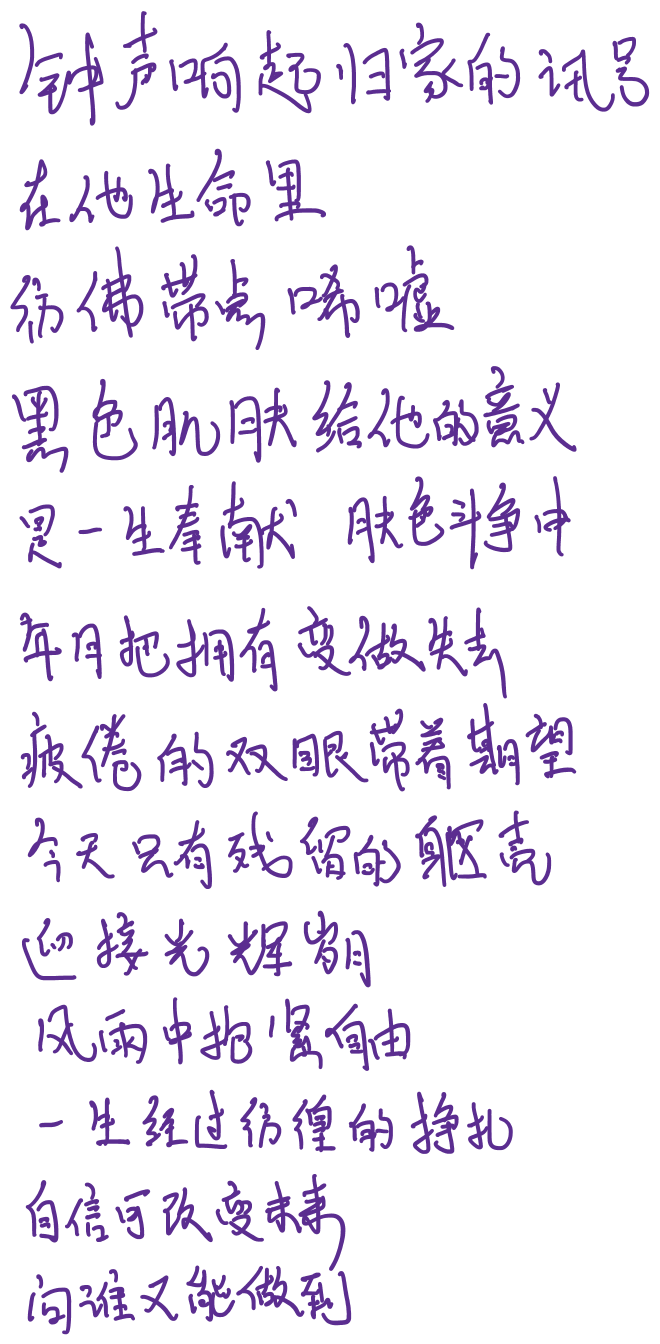 钟声响起归家的讯号
在他生命里
彷佛带点唏嘘
黑色肌肤给他的意义
是一生奉献 肤色斗争中
年月把拥有变做失去
疲倦的双眼带着期望
今天只有残留的躯壳
迎接光辉岁月
风雨中抱紧自由
一生经过彷徨的挣扎
自信可改变未来
问谁又能做到